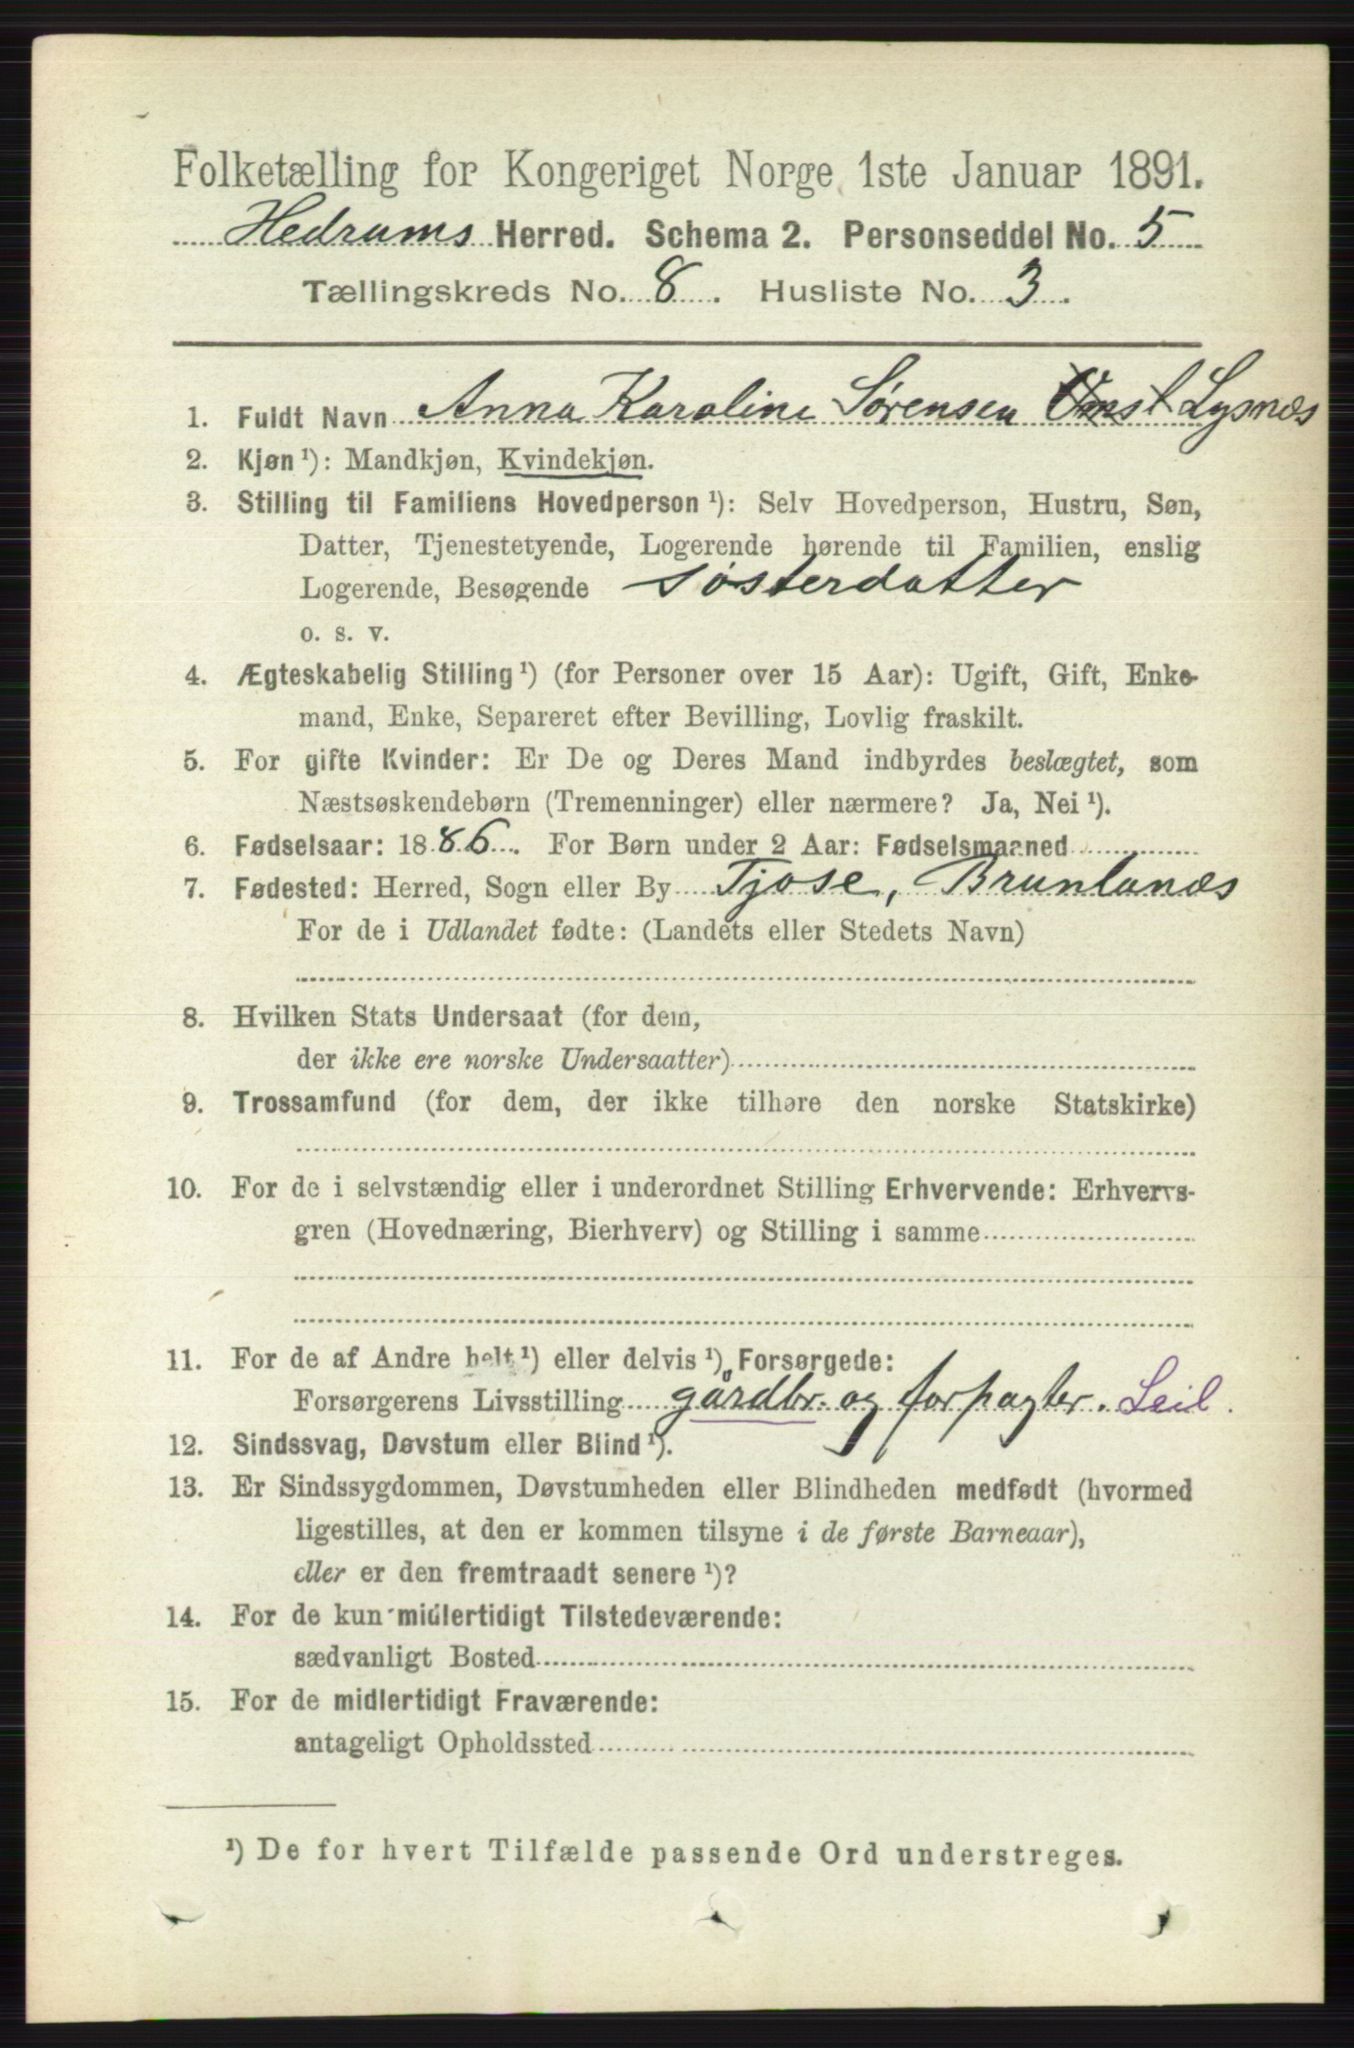 Folketælling for Kongeriget Norge 1ste Januar 1891.
Hedrums Herred. Schema 2. Personseddel No. 5
Tællingskreds No. 8. Husliste No. 3.
1. Fuldt Navn Anna Karoline Sørensen Lysnæs
2. Kjøn ¹): Mandkjøn, Kvindekjøn.
3. Stilling til Familiens Hovedperson ¹): Selv Hovedperson, Hustru, Søn,
Datter, Tjenestetyende, Logerende hørende til Familien, enslig
Logerende, Besøgende søsterdatter
o. s. v.
4. Ægteskabelig Stilling ¹) (for Personer over 15 Aar): Ugift, Gift, Enke-
mand, Enke, Separeret efter Bevilling, Lovlig fraskilt.
5. For gifte Kvinder: Er De og Deres Mand indbyrdes beslægtet, som
Næstsøskendebørn (Tremenninger) eller nærmere? Ja, Nei ¹).
6. Fødselsaar: 1886. For Børn under 2 Aar: Fødselsmaaned
7. Fødested: Herred, Sogn eller By Tjose, Brunlanæs
For de i Udlandet fødte: (Landets eller Stedets Navn)
8. Hvilken Stats Undersaat (for dem,
der ikke ere norske Undersaatter)
9. Trossamfund (for dem, der ikke tilhøre den norske Statskirke)
10. For de i selvstændig eller i underordnet Stilling Erhvervende: Erhvervs-
gren (Hovednæring, Bierhverv) og Stilling i samme
11. For de af Andre helt ¹) eller delvis ¹) Forsørgede:
Forsørgerens Livsstilling gårdbr. og forpagter. Leil.
12. Sindssvag, Døvstum eller Blind ¹).
13. Er Sindssygdommen, Døvstumheden eller Blindheden medfødt (hvormed
ligestilles, at den er kommen tilsyne i de første Barneaar),
eller er den fremtraadt senere ¹)?
14. For de kun midlertidigt Tilstedeværende:
sædvanligt Bosted
15. For de midlertidigt Fraværende:
antageligt Opholdssted
¹) De for hvert Tilfælde passende Ord understreges.